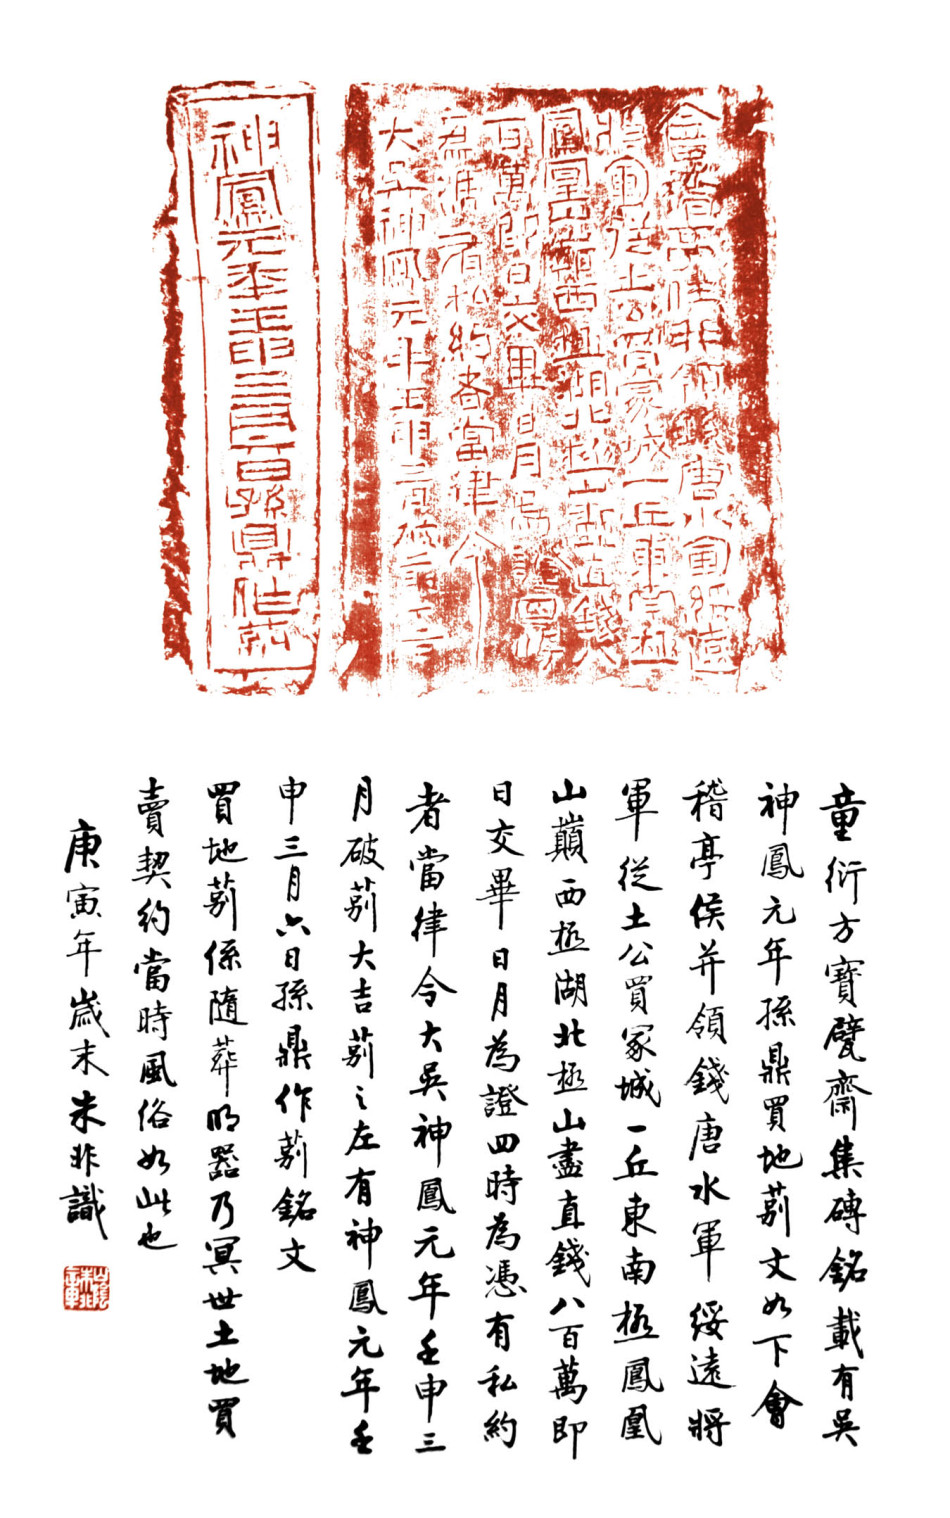 會稽亭侯并領錢唐水軍綏遠
將軍從土公買冢城一丘東南極
鳳凰山巔西極湖北極山盡直錢八
百萬即日交畢日月為證四時
為憑有私約者當律令
大吳神鳳元年壬申三月破莂大吉
神鳳元年壬申三月六日孫鼎作莂
童衍方寶甓齋集磚銘載有吳
神鳳元年孫鼎買地莂文如下會
稽亭侯并領錢唐水軍綏遠將
軍從土公買冢城一丘東南極鳳凰
山巔西極湖北極山盡直錢八百萬即
日交畢日月為證四時為憑有私約
者當律令大吳神鳳元年壬申三
月破莂大吉莂之左有神鳳元年壬
申三月六日孫鼎作莂銘文
買地莂係隨葬明器乃冥世土地買
賣契約當時風俗如此也
庚寅年歲末朱非識